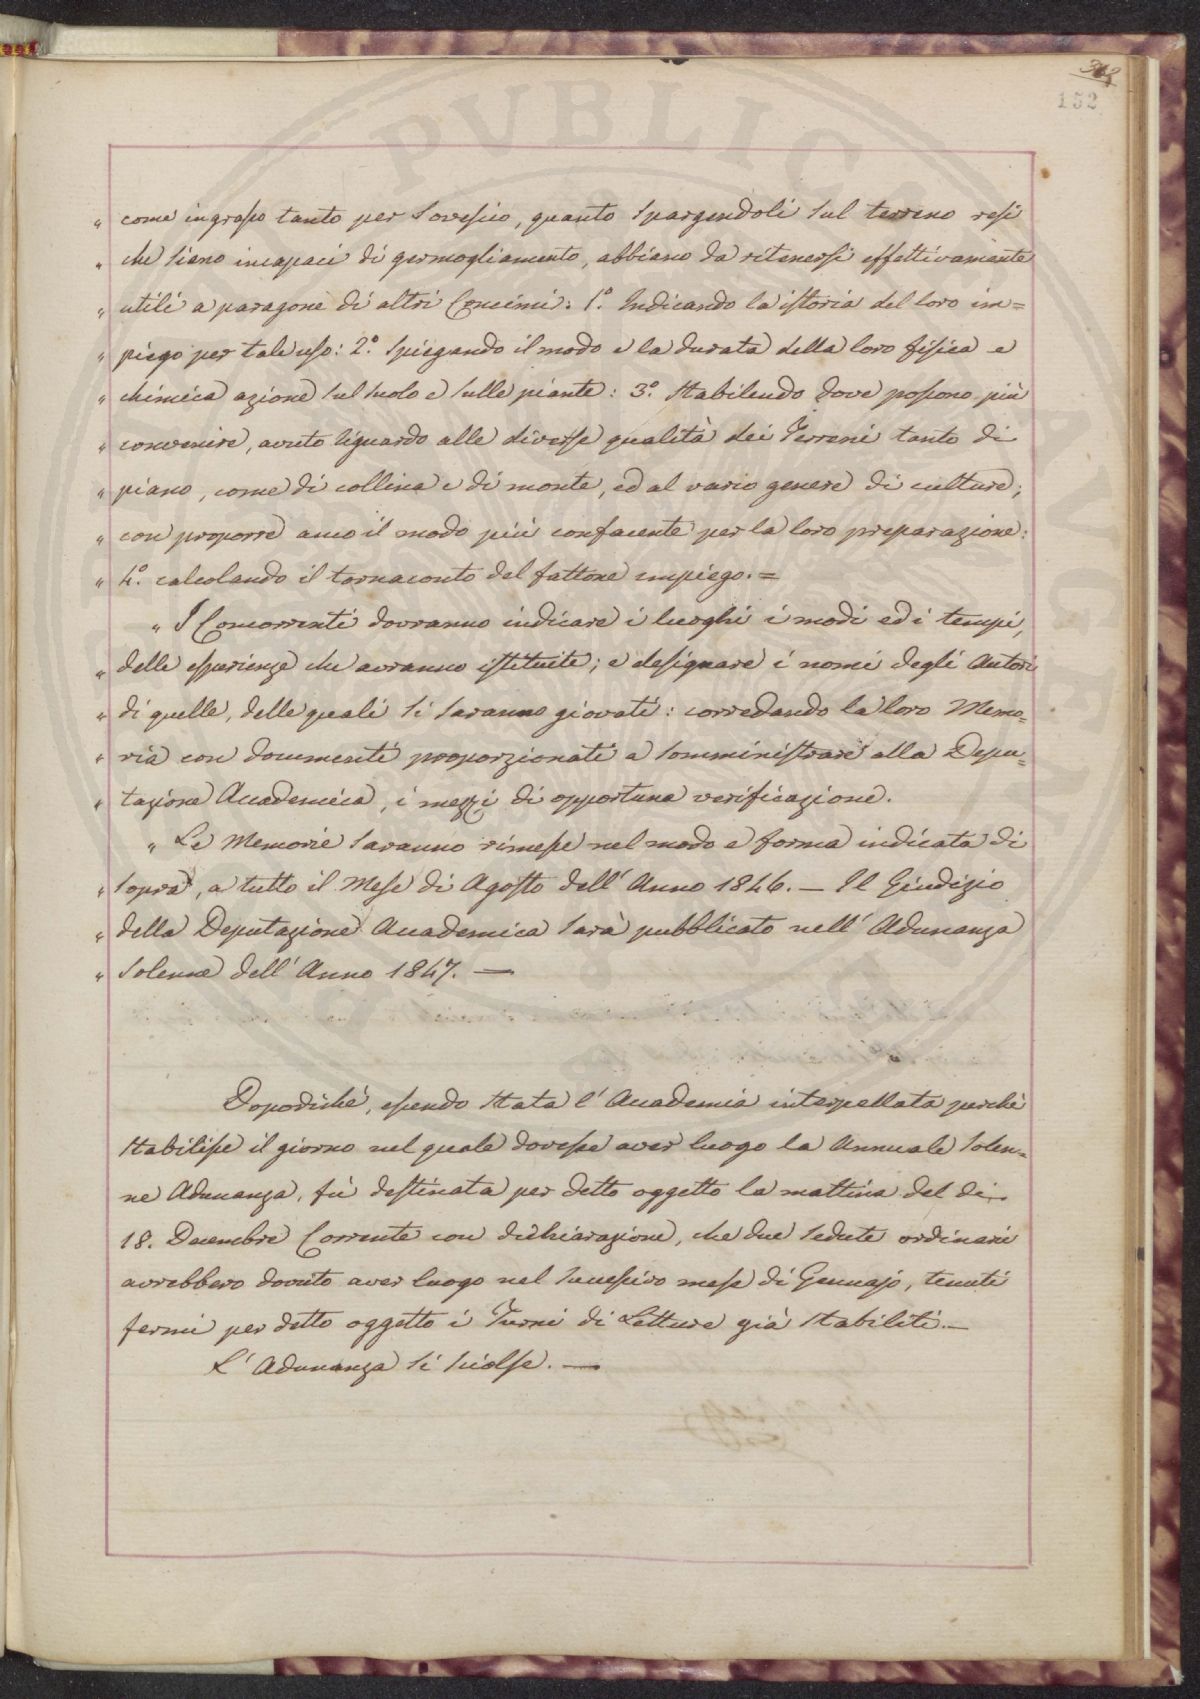 152
„ come ingrasso tanto per Sovescio, quanto Spargendoli Sul terreno resi
„ che Sieno incapaci di germogliamento, abbiano da ritenersi effettivamente
„ utili a paragone di altri Concimi: 1.° Indicando la istoria del loro im=
„ piego per tale uso: 2.° Spiegando il modo e la durata della loro fisica e
„ chimica azione Sul Suolo e Sulle piante: 3.° Stabilendo dove possono più
„ convenire, avuto riguardo alle diverse qualità dei Terreni tanto di
„ piano, come di collina e di monte, ed al vario genere di culture;
„ con proporre anco il modo più confacente per la loro preparazione:
„ 4.° calcolando il tornaconto del fattone impiego. =
„ I Concorrenti dovranno indicare i luoghi i modi ed i tempi,
„ delle esperienze che avranno istituite; e designare i nomi degli Autori
„ di quelle, delle quali Si Saranno giovati: corredando la loro Memo=
„ ria con documenti proporzionati a Somministrare alla Depu=
„ tazione Accademica, i mezzi di opportuna verificazione.
„ Le Memorie Saranno rimesse nel modo e forma indicata di
„ Sopra, a tutto il Mese di Agosto dell' Anno 1846. — Il Giudizio
„ della Deputazione Accademica Sarà pubblicato nell' Adunanza
„ Solenne dell' Anno 1847. —
Dopodichè, essendo Stata l' Accademia interpellata perchè
Stabilisse il giorno nel quale dovesse aver luogo la Annuale Solen=
ne Adunanza, fù destinata per detto oggetto la mattina del dì
18. Decembre Corrente con dichiarazione, che due Sedute ordinarie
avrebbero dovuto aver luogo nel Successivo mese di Gennajo, tenuti
fermi per detto oggetto i Turni di Letture già Stabiliti. —
L' Adunanza Si Sciolse. —